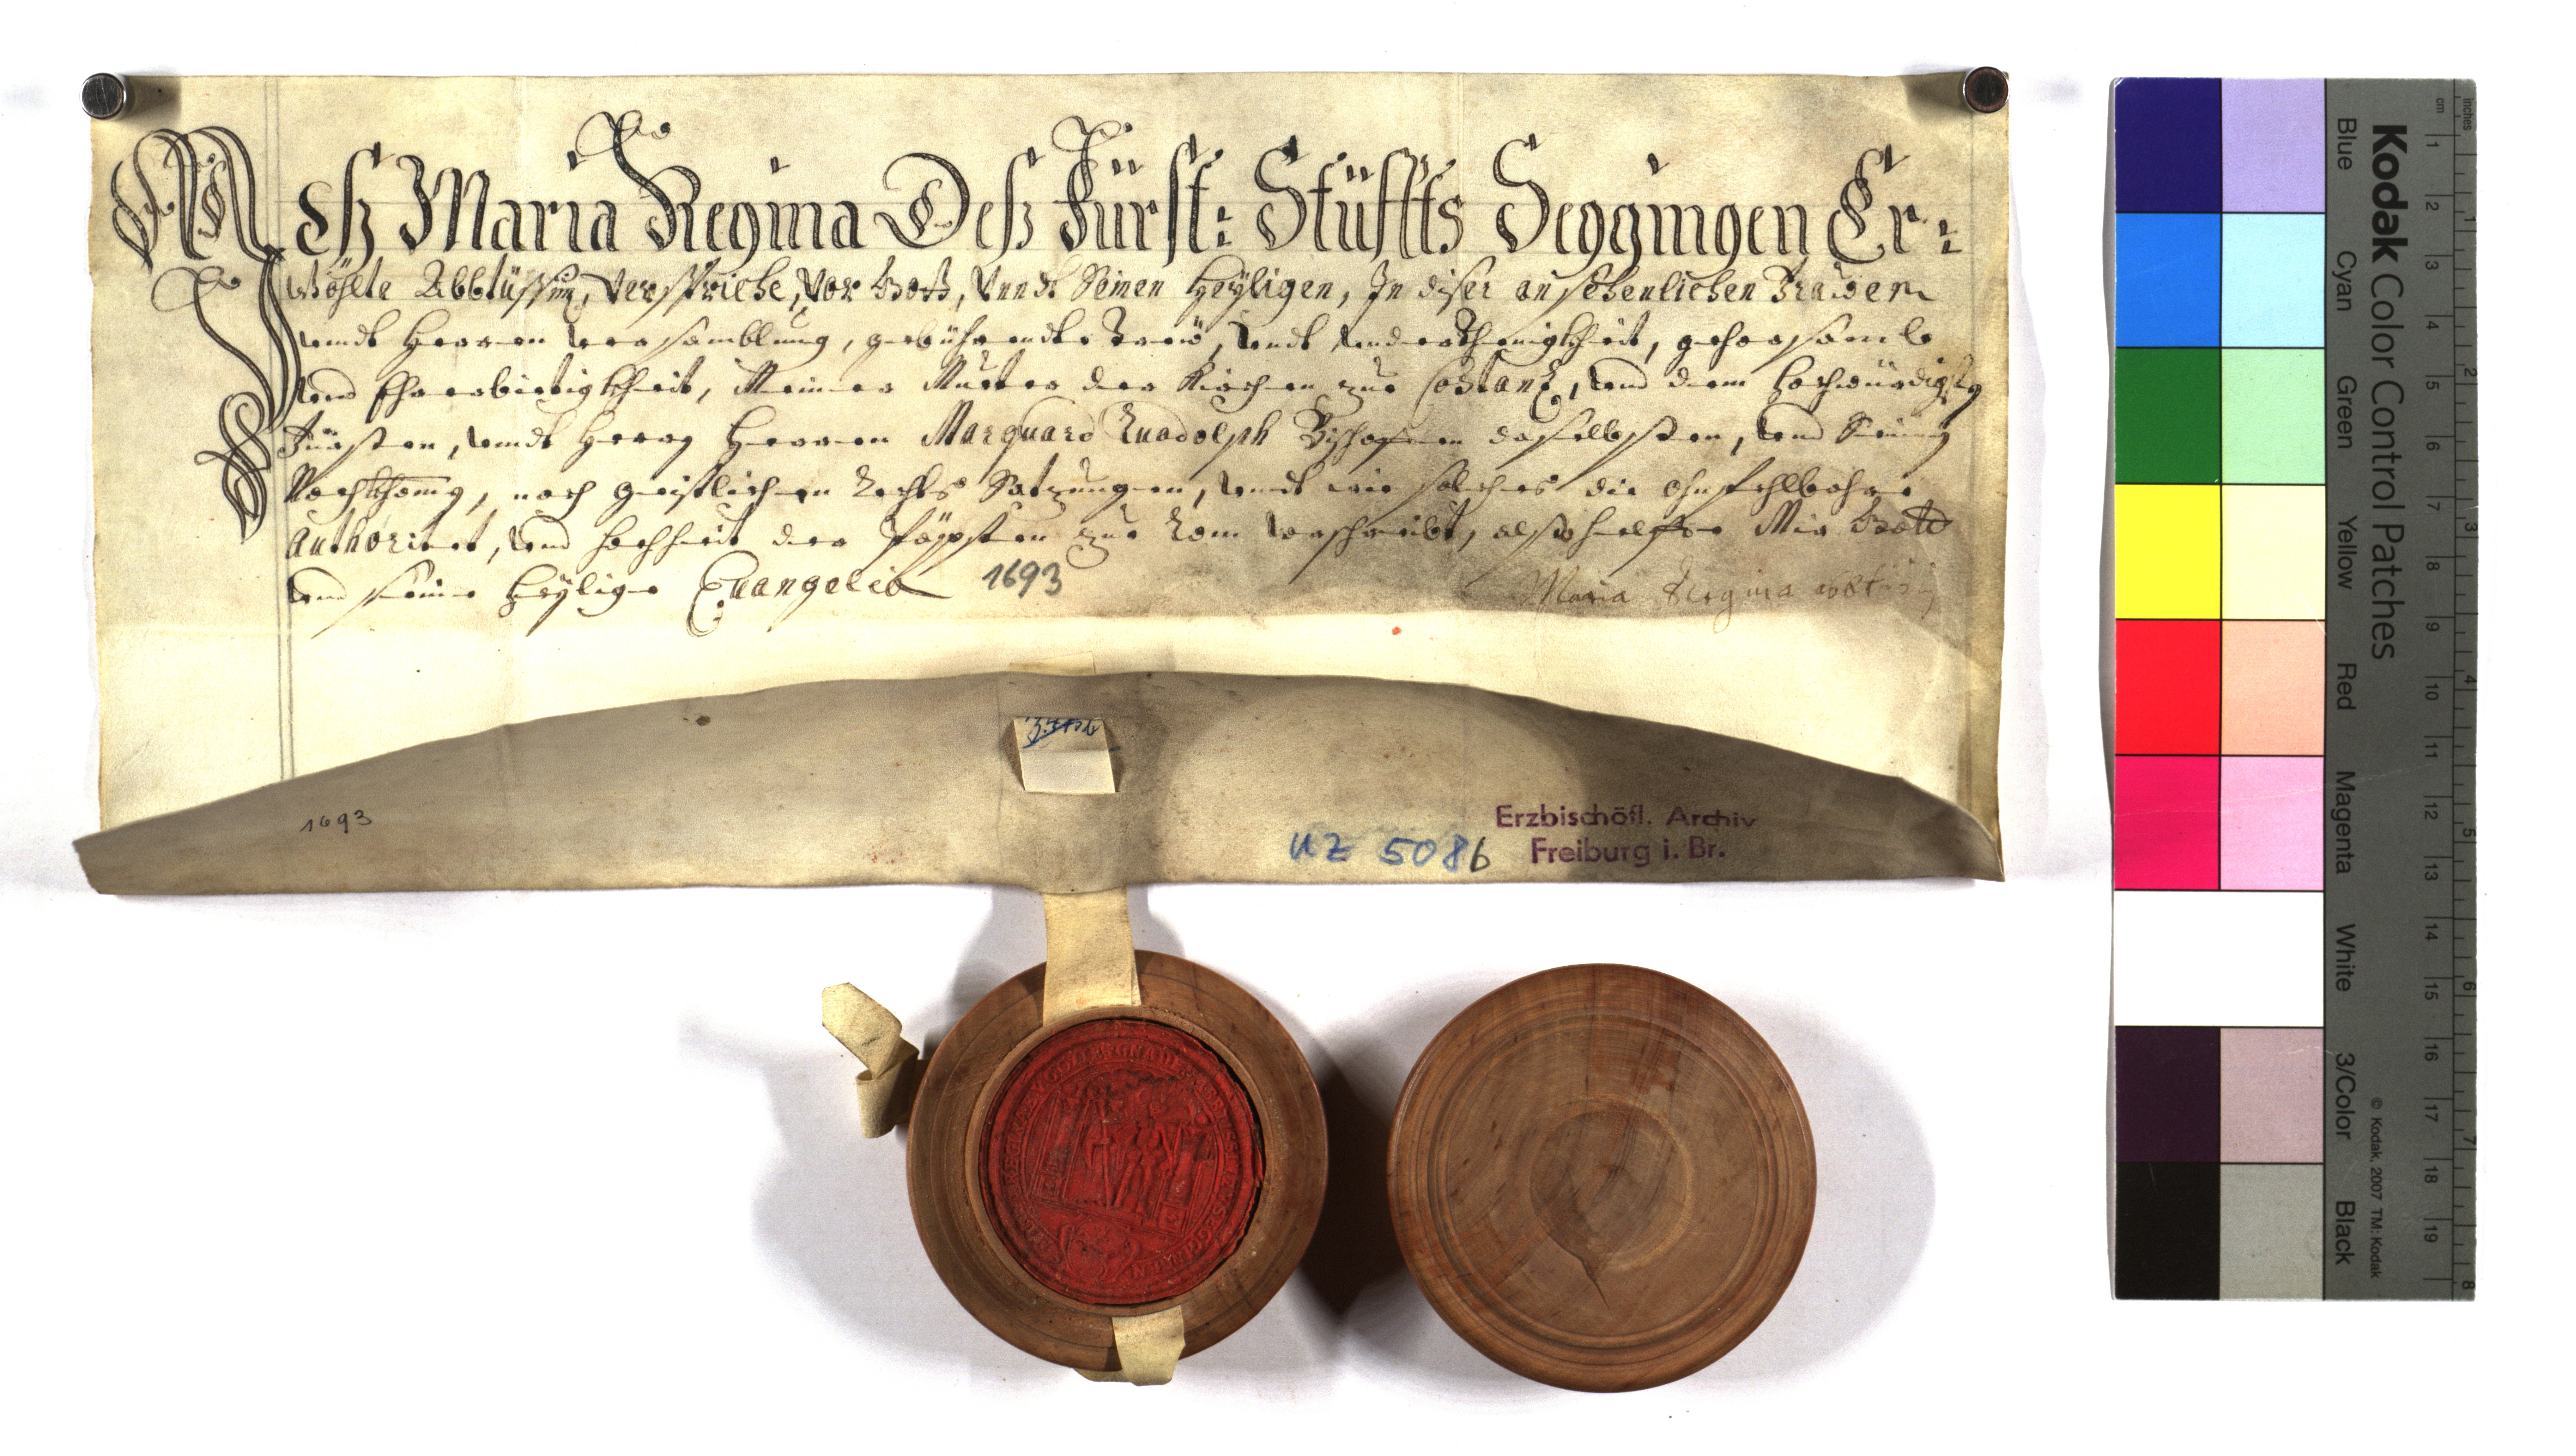 Maria Regina Deß Fürst: Stüffts Seggingen Er:
wöhlte Abbtüssin, verspriche, vor Gott, vnndt Seinen Heyligen, In diser ansehenlichen Frawen
vnndt Herren versamblung, gebührendte Trew, vndt vnderthenigkheit, gehorsamb
vnd Ehrerbietigkheit, Meiner Mutter der Kirchen zue Costantz, vnd dem Hochwürdigsten
Fürsten, vnndt Herrn Herren Marquard Ruodolph Bischoffen daselbsten, vnd Seinen
Nachkhomen, nach geistlichen Rechts Satzungen, vnndt wie solches die ohnfehlbahre
Authoritet, vnd hochheit der Päpsten zue Rom vorschreibt, also helffe Mir Gott
vnd seine heylige Euangelia 1693
Maria Regina
1693
Erzbischöfl. Archiv
Freiburg i. Br.
UZ 5086
Kodak Color Control Patches
Blue Cyan Green Yellow Red Magenta White 3/Color Black
© Kodak, 2007 TM: Kodak
cm 1 2 3 4 5 6 7 8 9 10 11 12 13 14 15 16 17 18 19
inches 1 2 3 4 5 6 7 8